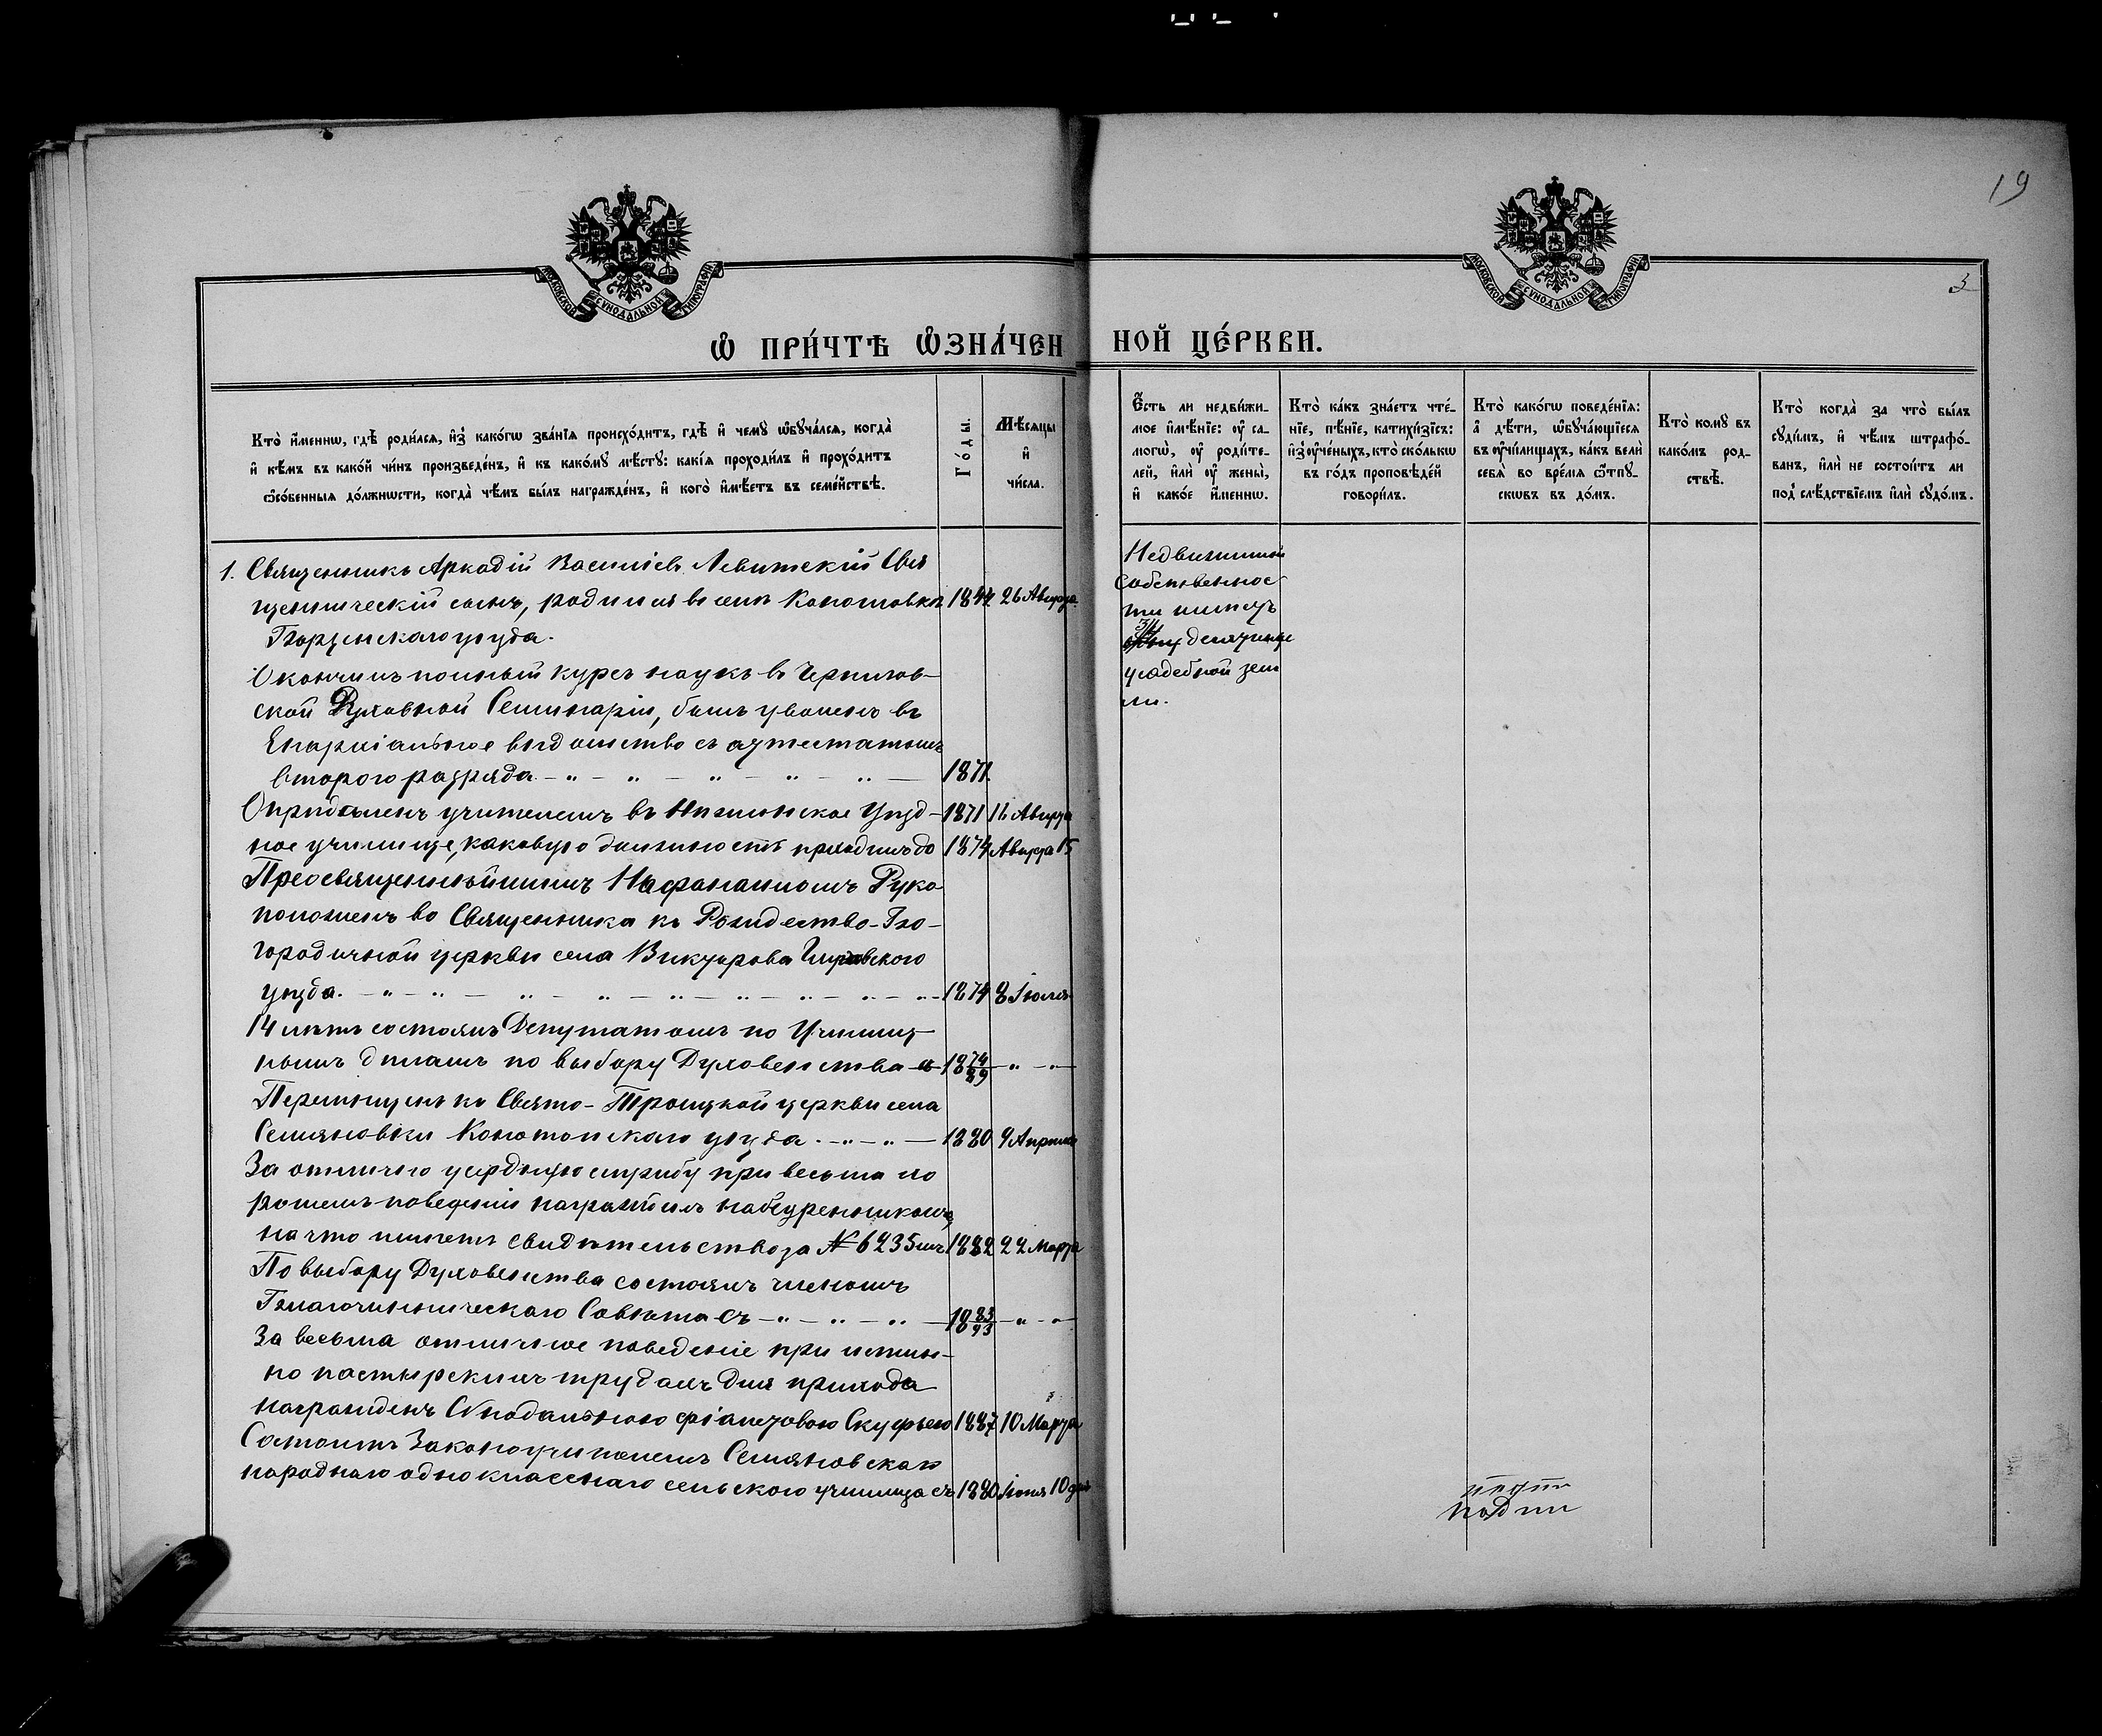 19
3
МОСКОВСКОЙ СѴНОДАЛЬНОЙ ТИПОГРАФІИ
МОСКОВСКОЙ СѴНОДАЛЬНОЙ ТИПОГРАФІИ
Ѽ ПРИ́ЧТѢ ѼЗНА́ЧЕННОЙ ЦЕ́РКВИ.
Кто̀ и҆́менно, гдѣ̀ роди́лся, и҆з̾ како́гѡ зва́нїѧ происхо́дитъ, гдѣ̀ и҆ чемꙋ̀ ѡ҆бꙋча́лся, когда̀
и҆ кѣ́мъ въ како́й чи́нъ произведе́нъ, и҆ къ како́мꙋ мѣ́стꙋ: какі́ѧ проходи́лъ и҆ прохо́дитъ
ѻ҆со́бенныѧ до́лжнѡсти, когда̀ чѣ́мъ бы́лъ награжде́нъ, и҆ кого̀ и҆мѣ́етъ въ семе́йствѣ.
Го́ды.
Мѣ́сѧцы
и҆
чи́сла.
Є҆́сть ли недви́жи-
мое и҆мѣ́нїе: ᲂу҆ са-
могѡ̀, ᲂу҆ роди́те-
лей, и҆лѝ ᲂу҆ жены̀,
и҆ како́е и҆́меннѡ.
Кто̀ ка́къ зна́етъ чте́-
нїе, пѣ́нїе, катихи́зїсъ:
и҆з̾ ᲂу҆че́ныхъ, кто̀ ско́лькѡ
въ го́дъ проповѣ́дей
говори́лъ.
Кто̀ како́гѡ поведе́нїѧ:
а҆ дѣ́ти, ѡ҆бꙋча́ющїесѧ
въ ᲂу҆чи́лищахъ, ка́къ велѝ
себѧ̀ во вре́мѧ ѿпꙋ-
скѡвъ въ до́мъ.
Кто̀ комꙋ̀ въ
како́мъ род-
ствѣ̀.
Кто̀ когда̀ за что̀ бы́лъ
сꙋди́мъ, и҆ чѣ́мъ штрафо́-
ванъ, и҆лѝ не состои́тъ ли
под̾ слѣ́дствїемъ и҆лѝ сꙋдо́мъ.
1. Священникъ Аркадій Василіевъ Левитскій Свя
щенническій сынъ, родился въ селѣ 1844 26 Августа
Борзенскаго уѣзда.
Окончилъ полный курсъ наукъ въ Чернигов-
ской Духовной Семинаріи, былъ уволенъ въ
Епархіальное вѣдомство съ аттестатомъ
второго разряда 1871.
Опредѣленъ учителемъ въ Нѣжинское Уѣзд- 1871 16 Августа
ное училище, каковую должность проходилъ до 1874 Августа 15
Преосвященнѣйшимъ Нафанаиломъ Руко
положенъ во Священника къ Рождество-Бо-
городичной церкви села
уѣзда. 1874 8 Іюля
14 лѣтъ состоялъ Депутатомъ по Училищ-
нымъ дѣламъ по выбору Духовенства 18 74/89
Перемѣщенъ къ Свято-Троицкой церкви села
Семяновки Конотопскаго уѣзда 1880 9 Апрѣля
За отлично усердную службу при весьма хо
рошемъ поведеніи награжденъ набедренникомъ,
на что имѣетъ свидѣтельство за № 6235 1882 22 Марта
По выбору Духовенства состоялъ членомъ
Благочинническаго Совѣта съ 18 83/93
За весьма отличное поведеніе при истин-
но пастырскихъ трудахъ для прихода
награжденъ Сѵнодальною фіолетовою Скуфьею 1887 10 Марта
Состоитъ Законоучителемъ Семяновскаго
народнаго одноклasснаго сельскаго училища съ 1880 Іюня 10 дня
Недвижимой
собственнос
ти имѣетъ
3/4 десятины
усадебной зем
ли.